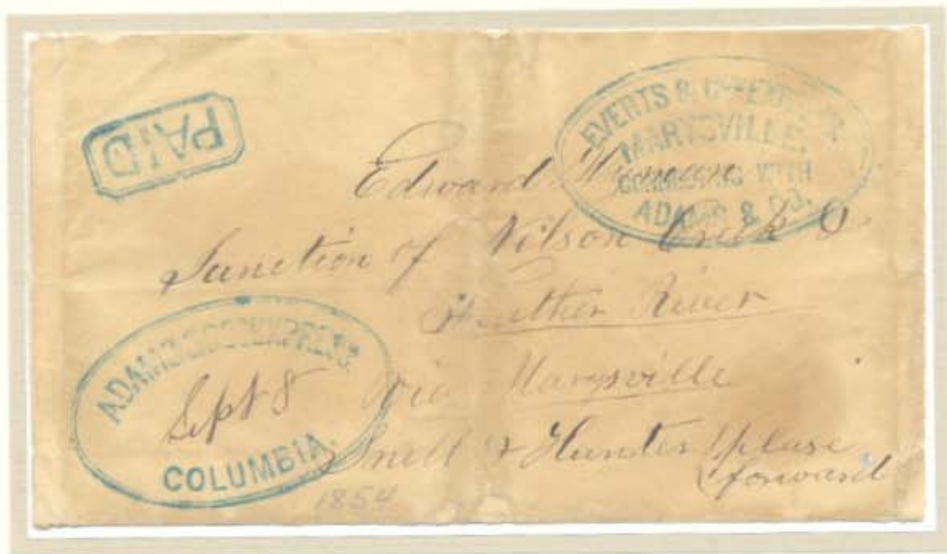 PAID
EVERTS & CO
MARYSVILLE
CONNECTING WITH
ADAMS & CO.
Edward
Junction of Nilson Creek &
Feather River
Via Marysville
Snell & Hunter please
forward
ADAMS & CO EXPRESS
Sept 8
COLUMBIA.
1854